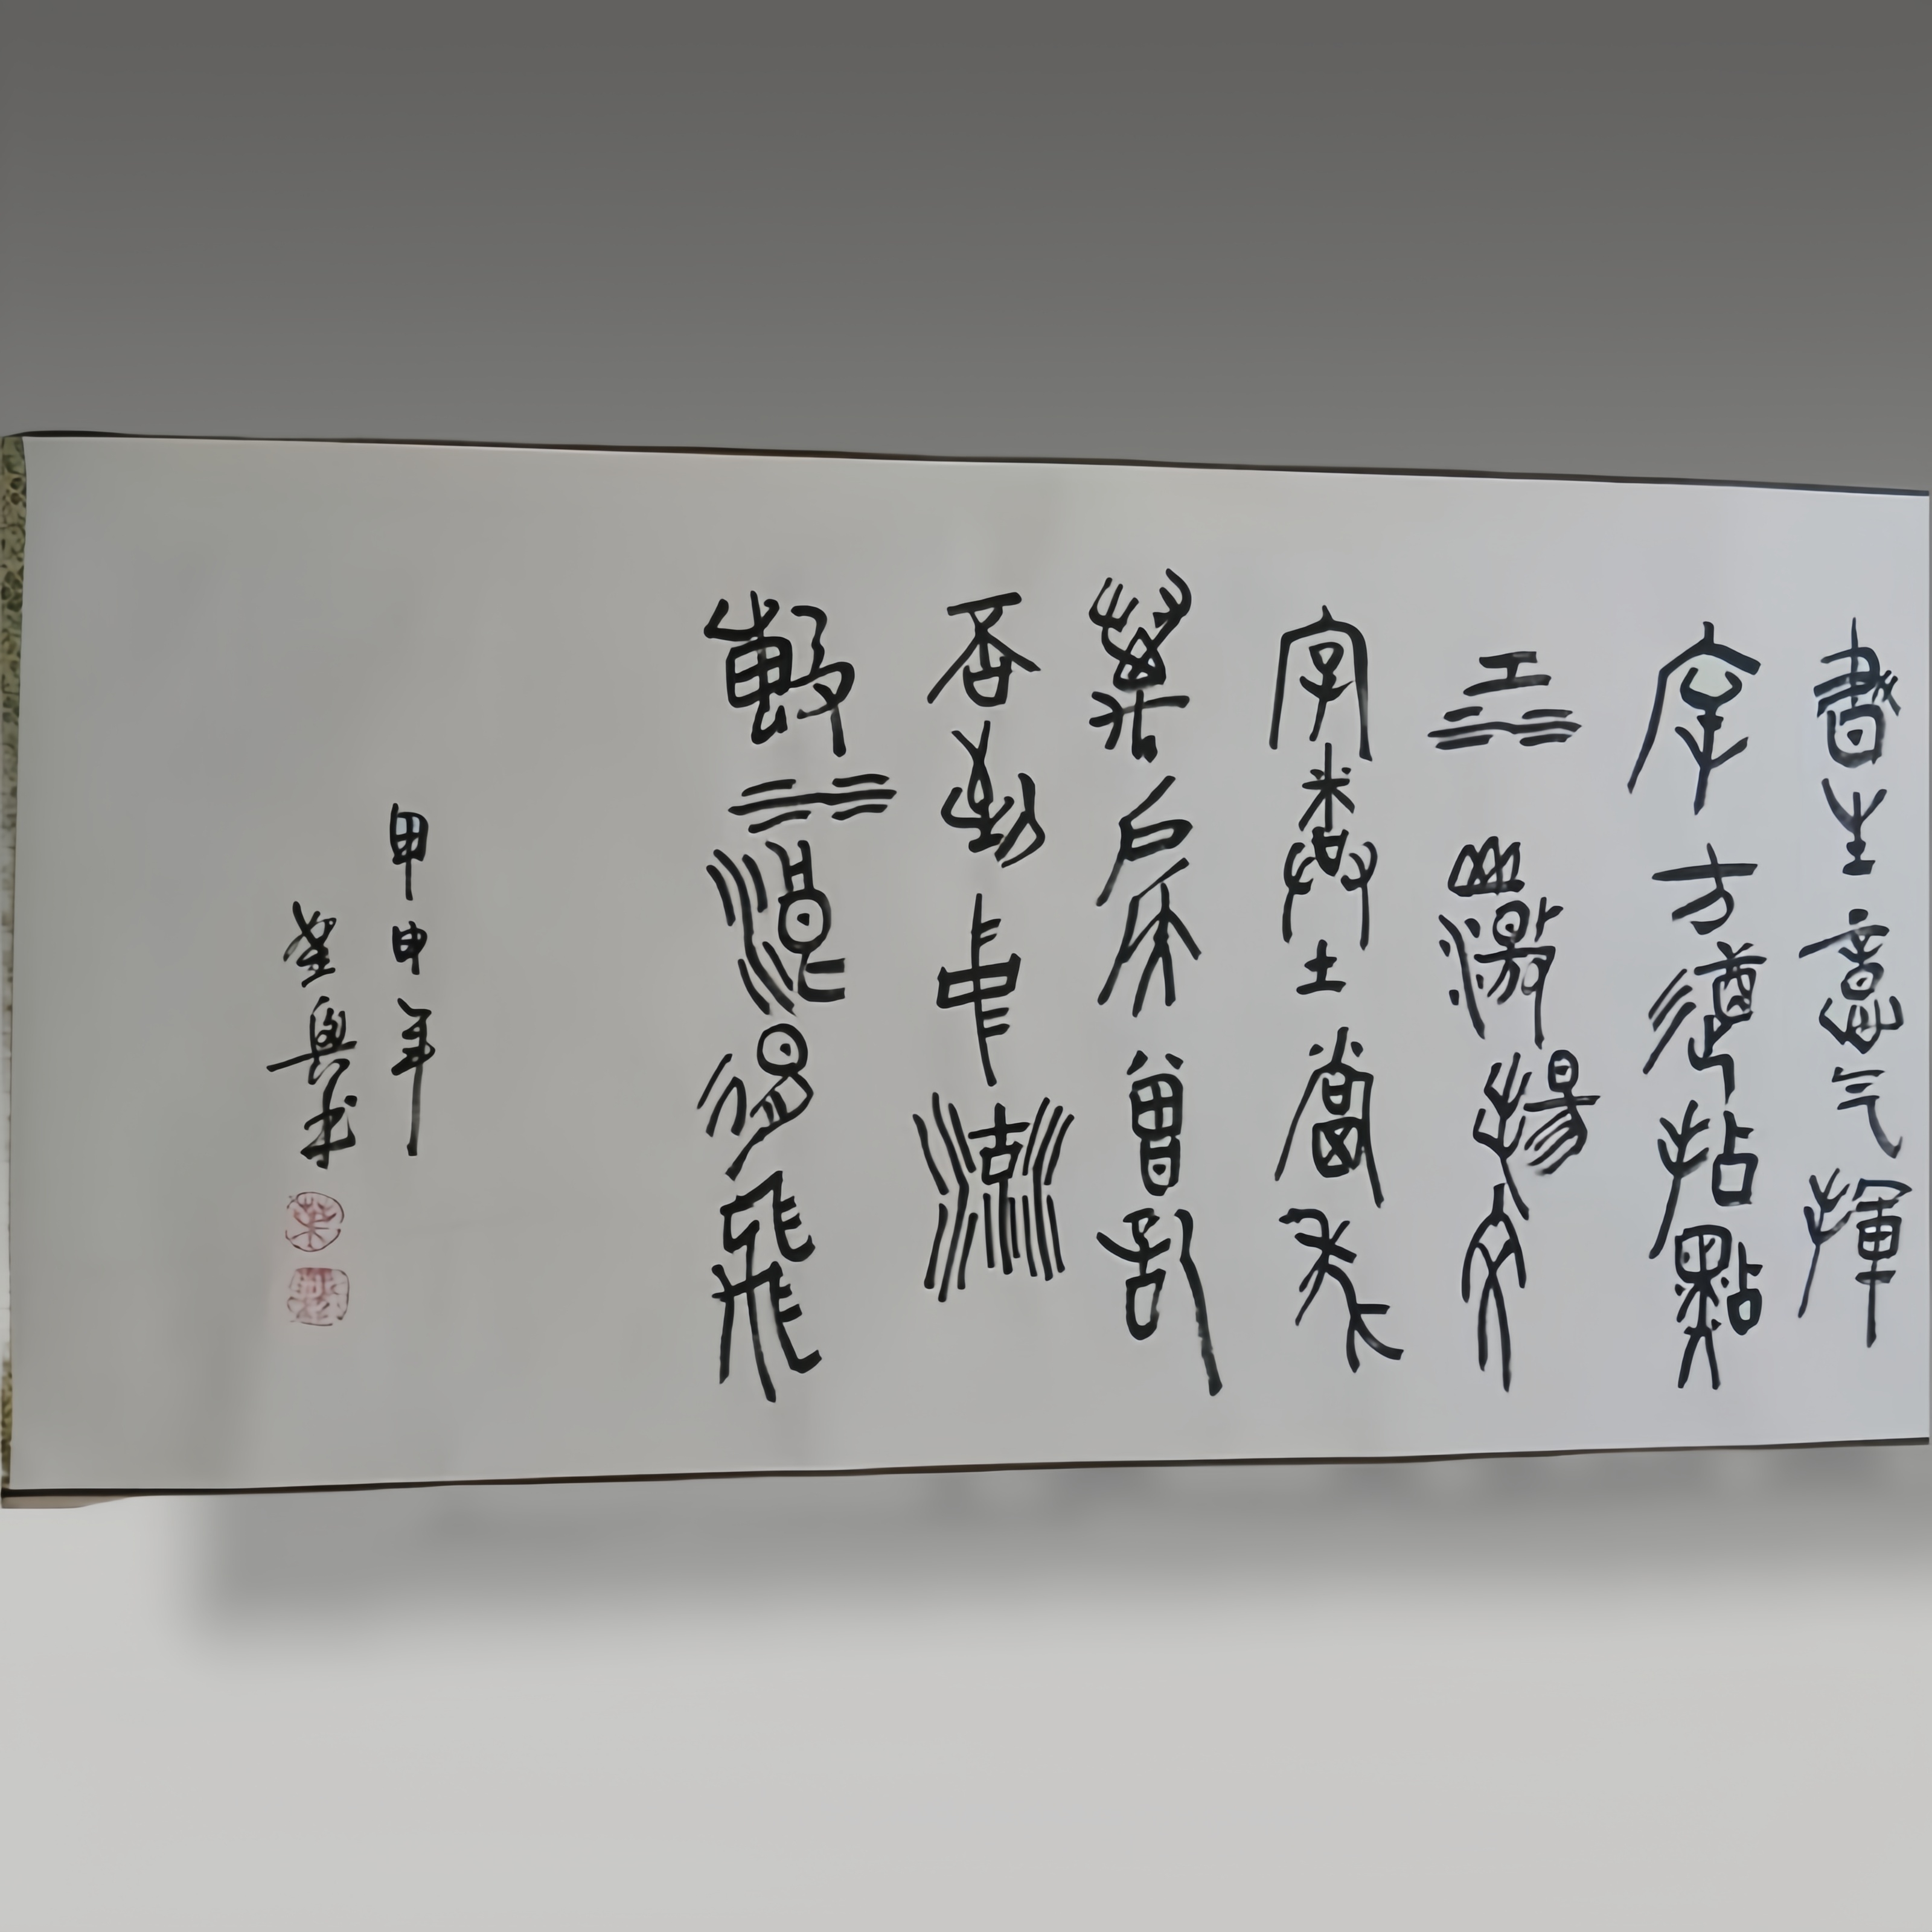 書生意气揮
斥方遒指點
江山激揚文
字糞土當年
萬户侯曾記
否到中流
擊水浪遏飛
甲申年